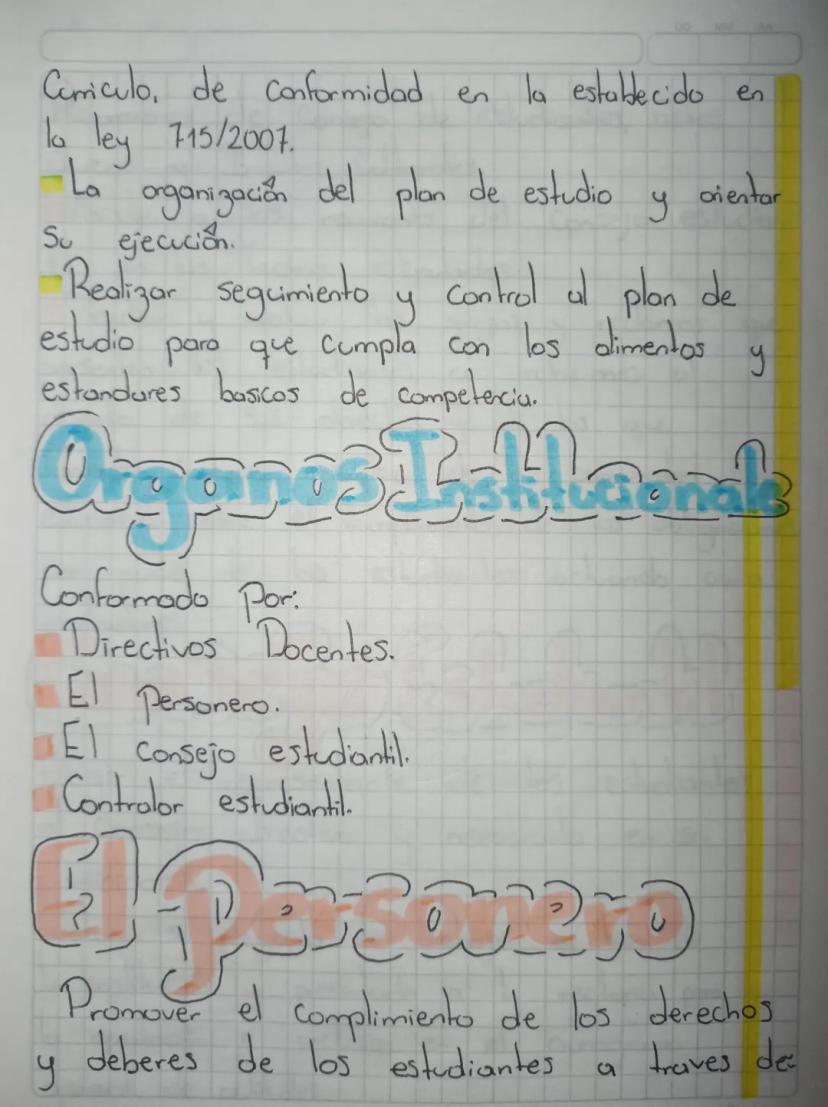 Curriculo, de conformidad en la establecido en
la ley 715/2007.
La organización del plan de estudio y orientar
su ejecución.
Realizar seguimiento y control al plan de
estudio para que cumpla con los alimentos y
estandares basicos de competencia.
Organos Institucionales
Conformado Por:
Directivos Docentes.
El personero.
El consejo estudiantil.
Contralor estudiantil.
El Personero
Promover el complimiento de los derechos
y deberes de los estudiantes a traves de: